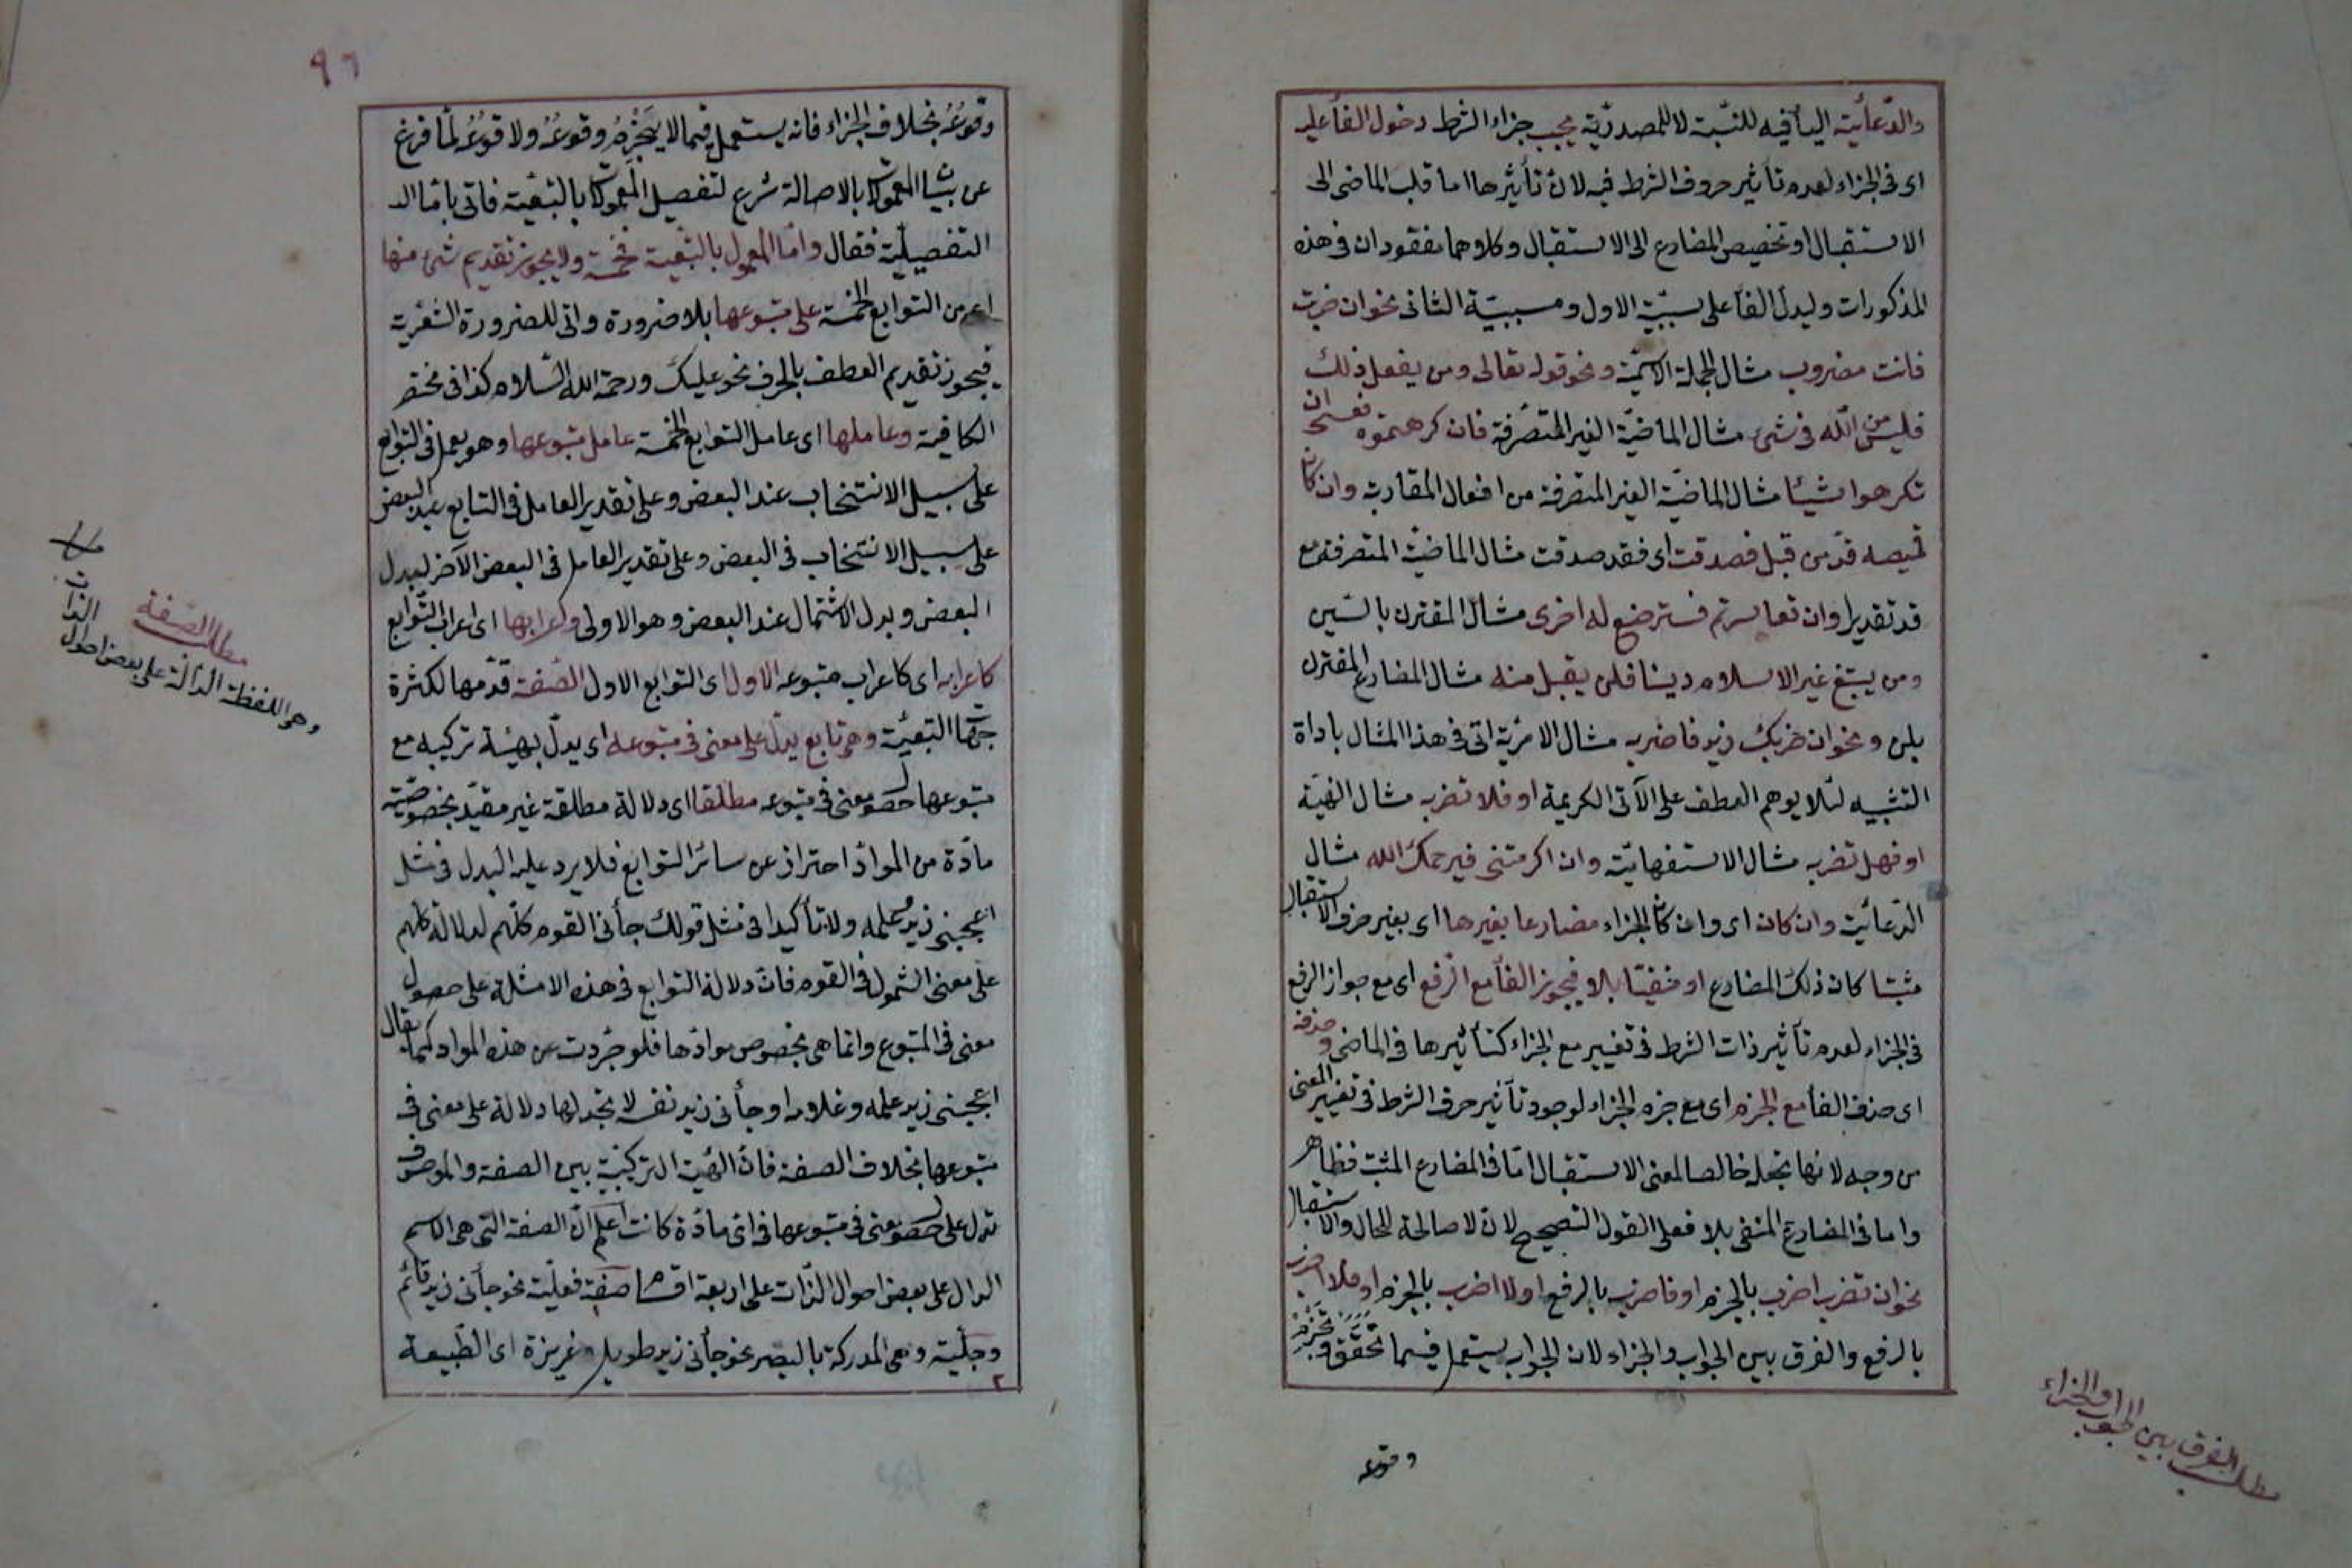 والدّعائية الياء فيه للنسبة لا للمصدريّة يجب جزاء الشرط دخول الفاء عليه
اى فى الجزاء لعدم تأثير حروف الشرط فيه لان تأثيرها اما قلب الماضى الى
الاستقبال او تخصيص المضارع الى الاستقبال وكلاهما مفقودان فى هذه
المذكورات وليدل الفاء على سببيّة الاول ومسببيّة الثانى نحو ان ضربت
فانت مضروب مثال الجملة الاسميّة ونحو قوله تعالى ومن يفعل ذلك
فليس من الله فى شئ مثال الماضيّة الغير المتصرّفة فان كرهتموه فعسى ان
تكرهوا شيئا مثال الماضيّة الغير المتصرفة من افعال المقاربة وان كان
قميصه قدّ من قبل فصدقت اى فقد صدقت مثال الماضيّة المتصرفة مع
قد تقديرا وان تعاسرتم فسترضع له اخرى مثال المقترن بالسّين
ومن يبتغ غير الاسلام دينا فلن يقبل منه مثال المضارع المقترن
بلن ونحو ان ضربك زيد فاضربه مثال الامريّة اتى فى هذا المثال باداة
التشبيه لئلا يوهم العطف على الآتى الكريمة او فلا تضربه مثال النهيّة
او فهل تضربه مثال الاستفهاميّة وان اكرمتنى فيرحمك الله مثال
الدّعائيّة وان كان اى وان كان الجزاء مضارعا بغيرها اى بغير حرف الاستقبال
مثبتا كان ذلك المضارع او منفيّا بلا فيجوز الفاء مع الرفع اى مع جواز الرفع
فى الجزاء لعدم تأثير ذات الشرط فى تغيير مع الجزاء كتأثيرها فى الماضى وحذفه
اى حذف الفاء مع الجزم اى مع جزم الجزاء لوجود تأثير حرف الشرط فى تغيير المعنى
من وجه لانها تجعله خالصا لمعنى الاستقبال امّا فى المضارع المثبت فظاهر
واما فى المضارع المنفى بلا فعلى القول الصحيح لان لا صالحة للحال والاستقبال
نحو ان تضرب اضرب بالجزم او فاضرب بالرفع او لا اضرب بالجزم او فلا اضرب
بالرفع والفرق بين الجواب والجزاء لان الجواب يستعمل فيما تحقّق وتجزم
وقوعه
مطلب الفرق بين الجواب والجزاء
٩٦
وقوعُهُ بخلاف الجزاء فانه يستعمل فيما لا يجزمُ وقوعُهُ ولا قوعُهُ لمّا فرغ
عن بيان المعمولات بالاصالة شرع لتفصيل المعمولات بالتبعيّة فاتى بامّا الد
التفصيليّة فقال وامّا المعمول بالتبعيّة فخمسة ولا يجوز تقديم شئ منها
اى من التوابع الخمسة على متبوعها بلا ضرورة واتى للضرورة الشعريّة
فيجوز تقديم العطف بالحرف نحو عليك ورحمة الله السّلام كذا فى مختصر
الكافية وعاملها اى عامل التوابع الخمسة عامل متبوعها وهو يعمل فى التوابع
على سبيل الانتخاب عند البعض وعلى تقدير العامل فى التابع عند البعض
على سبيل الانتخاب فى البعض وعلى تقدير العامل فى البعض الآخر لبدل
البعض وبدل الاشتمال عند البعض وهو الاولى واعرابها اى اعراب التّوابع
كاعرابه اى كاعراب متبوعه الاول اى التوابع الاول الصّفة قدّمها لكثرة
جهات التبعيّة وهى تابع يدلّ على معنى فى متبوعه اى يدلّ بهيئة تركيبه مع
متبوعها حصول معنى فى متبوعه مطلقا اى دلالة مطلقة غير مقيّد بخصوصيّته
مادّة من الموادّ احتراز عن سائر التوابع فلا يرد عليه البدل فى مثل
اعجبنى زيد علمه ولا تأكيدا فى مثل قولك جأنى القوم كلّهم لدلالة كلّهم
على معنى الشمول فى القوم فانّ دلالة التوابع فى هذه الامثلة على حصول
معنى فى المتبوع وانما هى بخصوص موادّها فلو جرّدت عن هذه المواد كما يقال
اعجبنى زيد علمه وغلامه او جأنى زيد نفسه لا تجد لها دلالة على معنى فى
متبوعها بخلاف الصفة فانّ الهيئة التركيبيّة بين الصفة والموصوف
تدل على حصول معنى فى متبوعها فى اى مادّة كانت اعلم انّ الصفة التى هى الاسم
الدال على بعض احوال الذّات على اربعة اقسام صفة فعليّة نحو جأنى زيد قائم
وحليّة وهى المدركة بالبصر نحو جأنى زيد طويل وغريزة اى الطّبيعة
٢
مطلب الصّفة
وهو اللفظة الدّالّة على بعض احوال
الذات